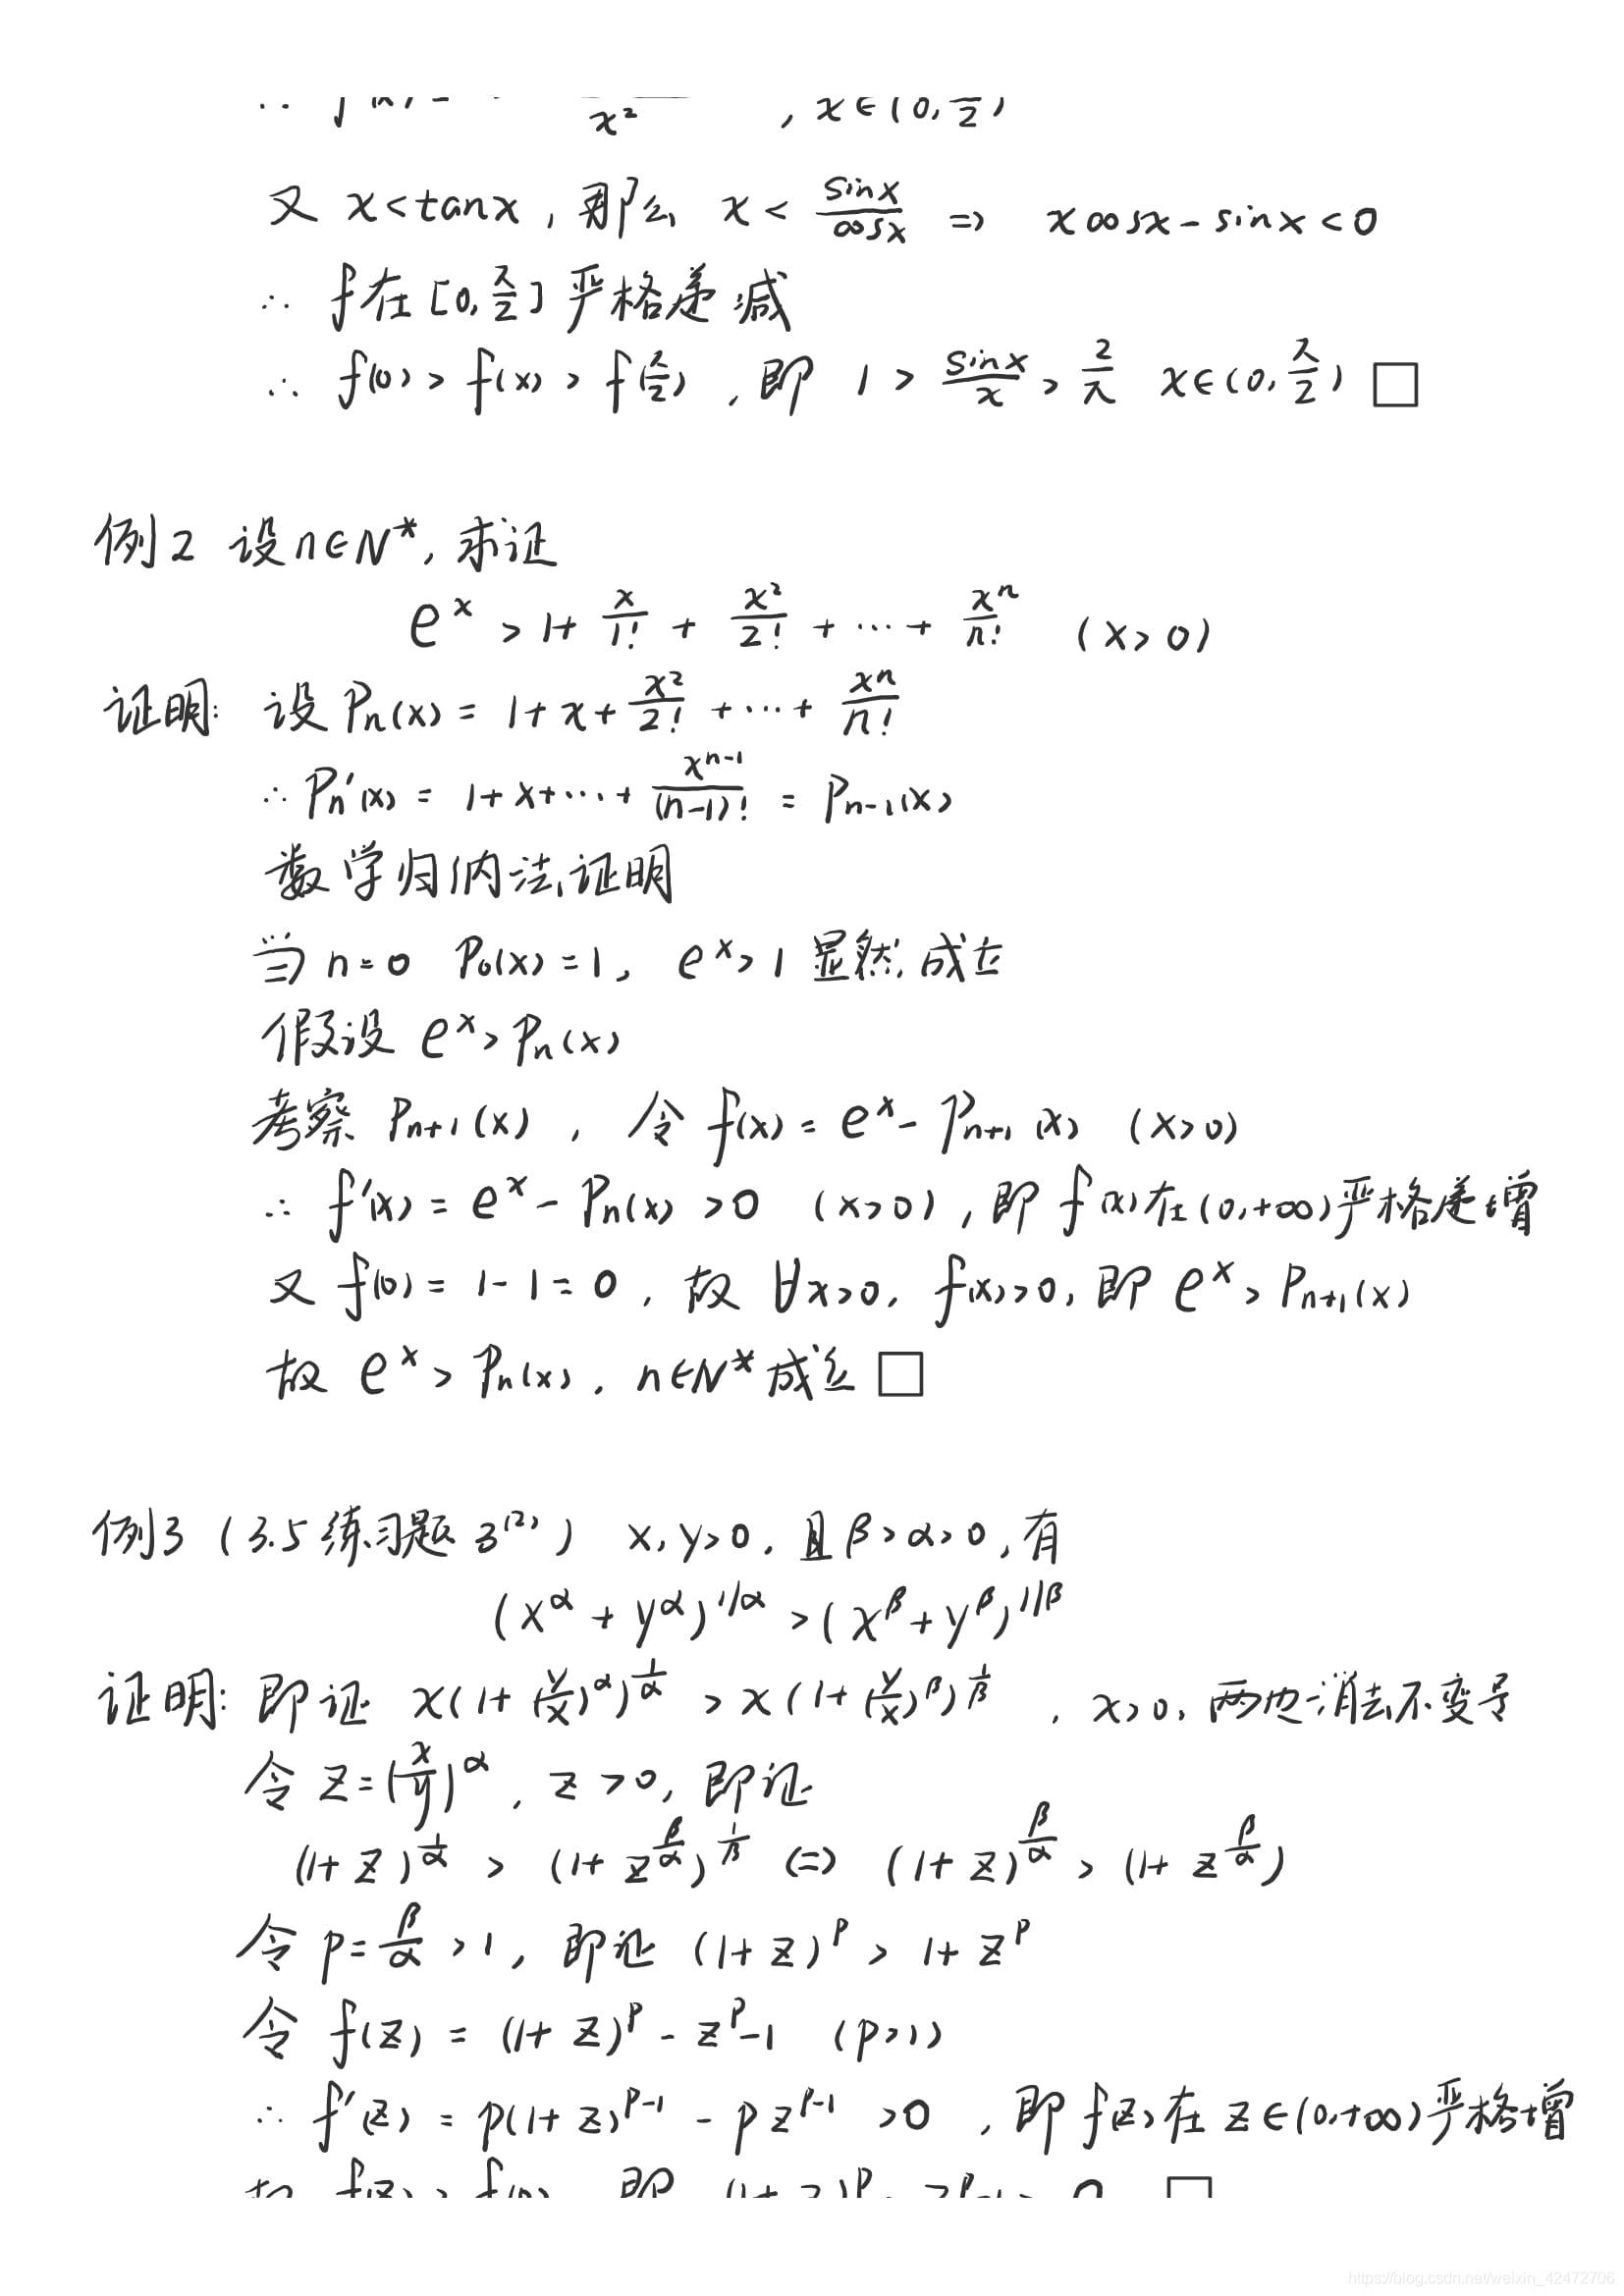 x² , x∈(0, π/2)
又 x<tanx , 那么 x < sinx/cosx ⇒ xcosx-sinx<0
∴ f在[0, π/2]严格递减
∴ f(0)>f(x)>f(π/2) , 即 1 > sinx/x > 2/π x∈(0, π/2) □
例2 设n∈N*, 求证
e^x > 1+ x/1! + x²/2! + ⋯ + x^n/n! (x>0)
证明: 设 Pn(x) = 1+x+ x²/2! + ⋯ + x^n/n!
∴ Pn'(x) = 1+x+⋯+ x^(n-1)/(n-1)! = Pn-1(x)
数学归纳法证明
当n=0 P0(x)=1, e^x>1 显然成立
假设 e^x>Pn(x)
考察 Pn+1(x) , 令 f(x)=e^x-Pn+1(x) (x>0)
∴ f'(x)=e^x-Pn(x)>0 (x>0) , 即f(x)在(0,+∞)严格递增
又 f(0)=1-1=0 , 故 ∀x>0, f(x)>0, 即 e^x>Pn+1(x)
故 e^x>Pn(x), n∈N*成立 □
例3 (3.5练习题3(2)) x,y>0, 且β>α>0, 有
(x^α+y^α)^(1/α) > (x^β+y^β)^(1/β)
证明: 即证 x(1+(y/x)^α)^(1/α) > x(1+(y/x)^β)^(1/β) , x>0, 两边消去不变号
令 z=(x/y)^α , z>0, 即证
(1+z)^(1/α) > (1+z^(β/α))^(1/β) ⇔ (1+z)^(β/α) > (1+z^(β/α))
令 p=β/α>1, 即证 (1+z)^p > 1+z^p
令 f(z) = (1+z)^p-z^p-1 (p>1)
∴ f'(z) = p(1+z)^(p-1)-pz^(p-1) >0 , 即f(z)在z∈(0,+∞)严格增
https://blog.csdn.net/weixin_42472706